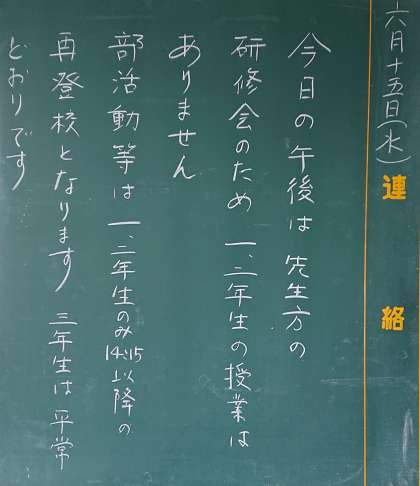 六月十五日(水)
連絡
今日の午後は先生方の
研修会のため一、二年生の授業は
ありません
部活動等は一、二年生のみ14:15以降の
再登校となります 三年生は平常
どおりです